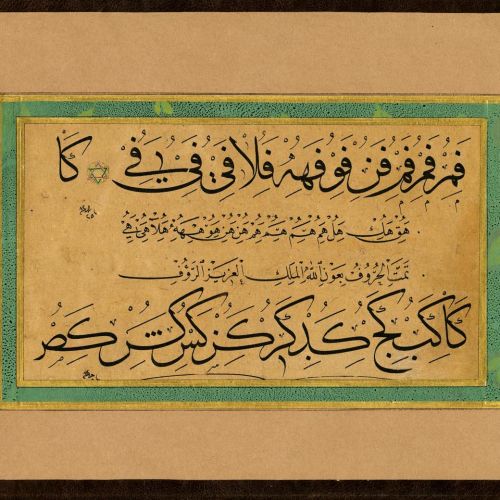 فم فم فم فن فو فهه فلا فى فى كا
هق هك هل هم هم هم هم هن هن هو ههه هلا هى هى
تمت الحروف بعون الله الملك العزيز الرؤف
كا كب كج كد كر كس كش كص